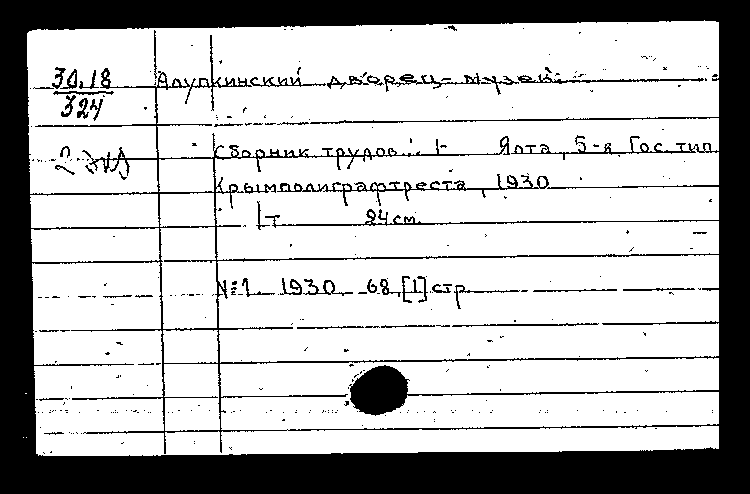 30.18
324
Алупкинский дворец-музей.
2 экз
Сборник трудов... 1- Ялта, 5-я Гос. тип.
Крымполиграфтреста, 1930
1 т 24 см.
№1. 1930. 68,[1] стр.